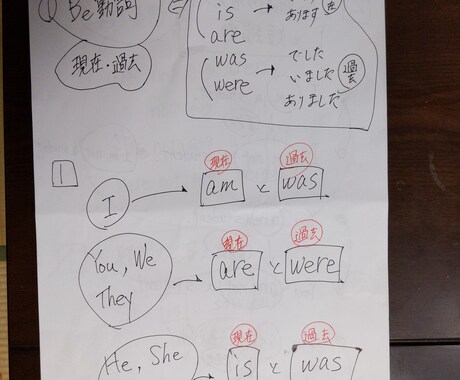 ① Be動詞
現在・過去
is
are
あります 在
was
were
でした
いました
ありました
過去
1
I
現在
am
と
過去
was
You, We
They
現在
are
と
過去
were
He, She
現在
is
と
過去
was